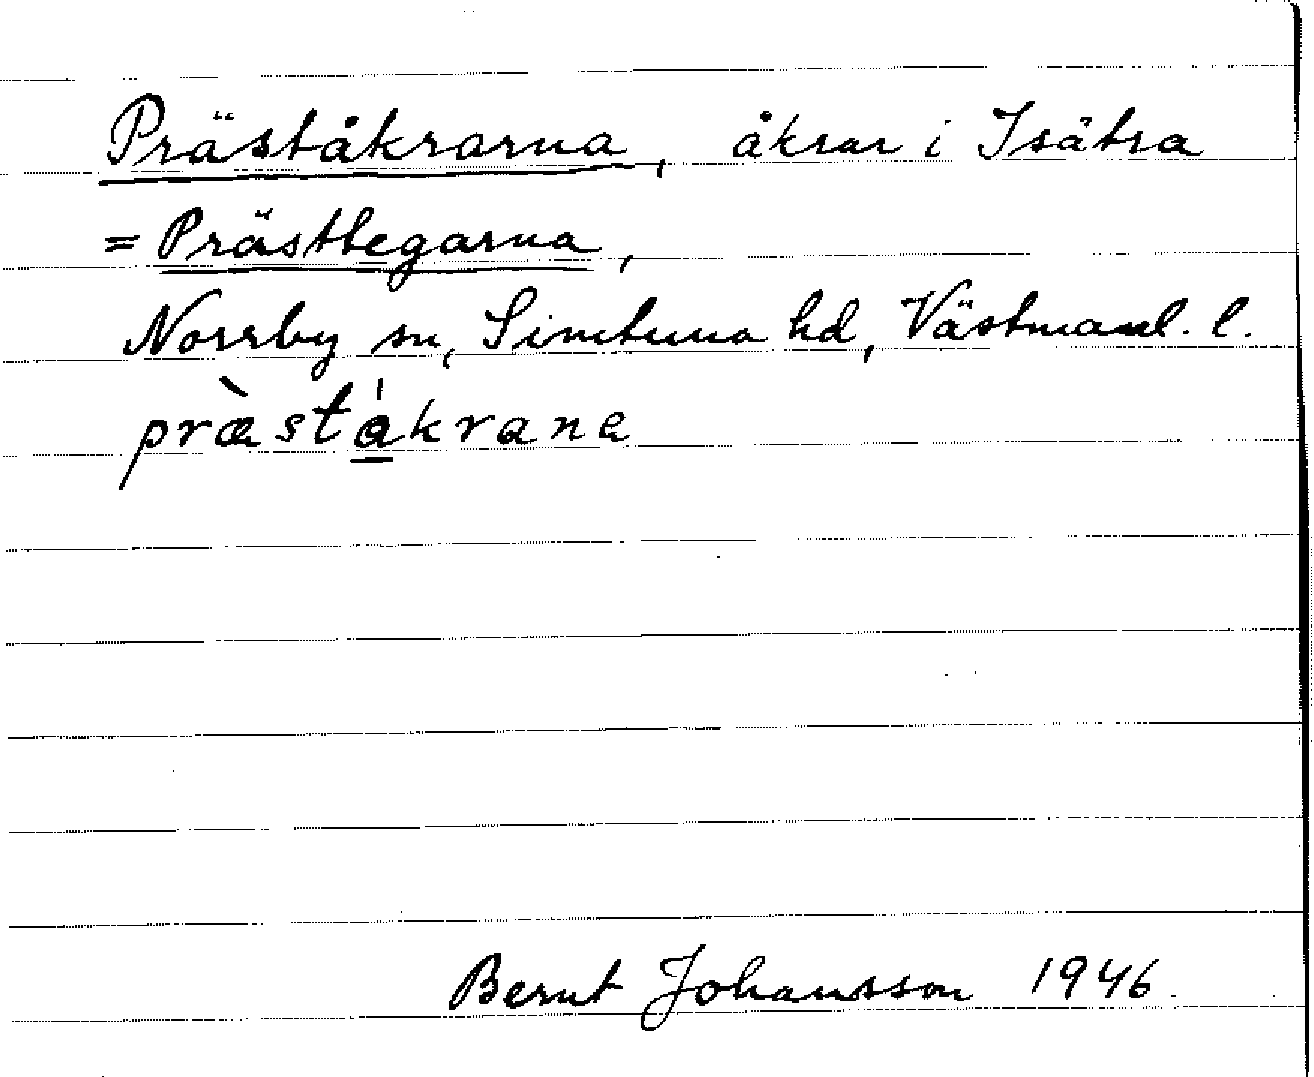 Präståkrarna, åkrar i Isätra
= Prästtegarna,
Norrby sn, Simtuna hd, Västmanl. l.
præ̀stǻkrana
Bernt Johansson 1946.